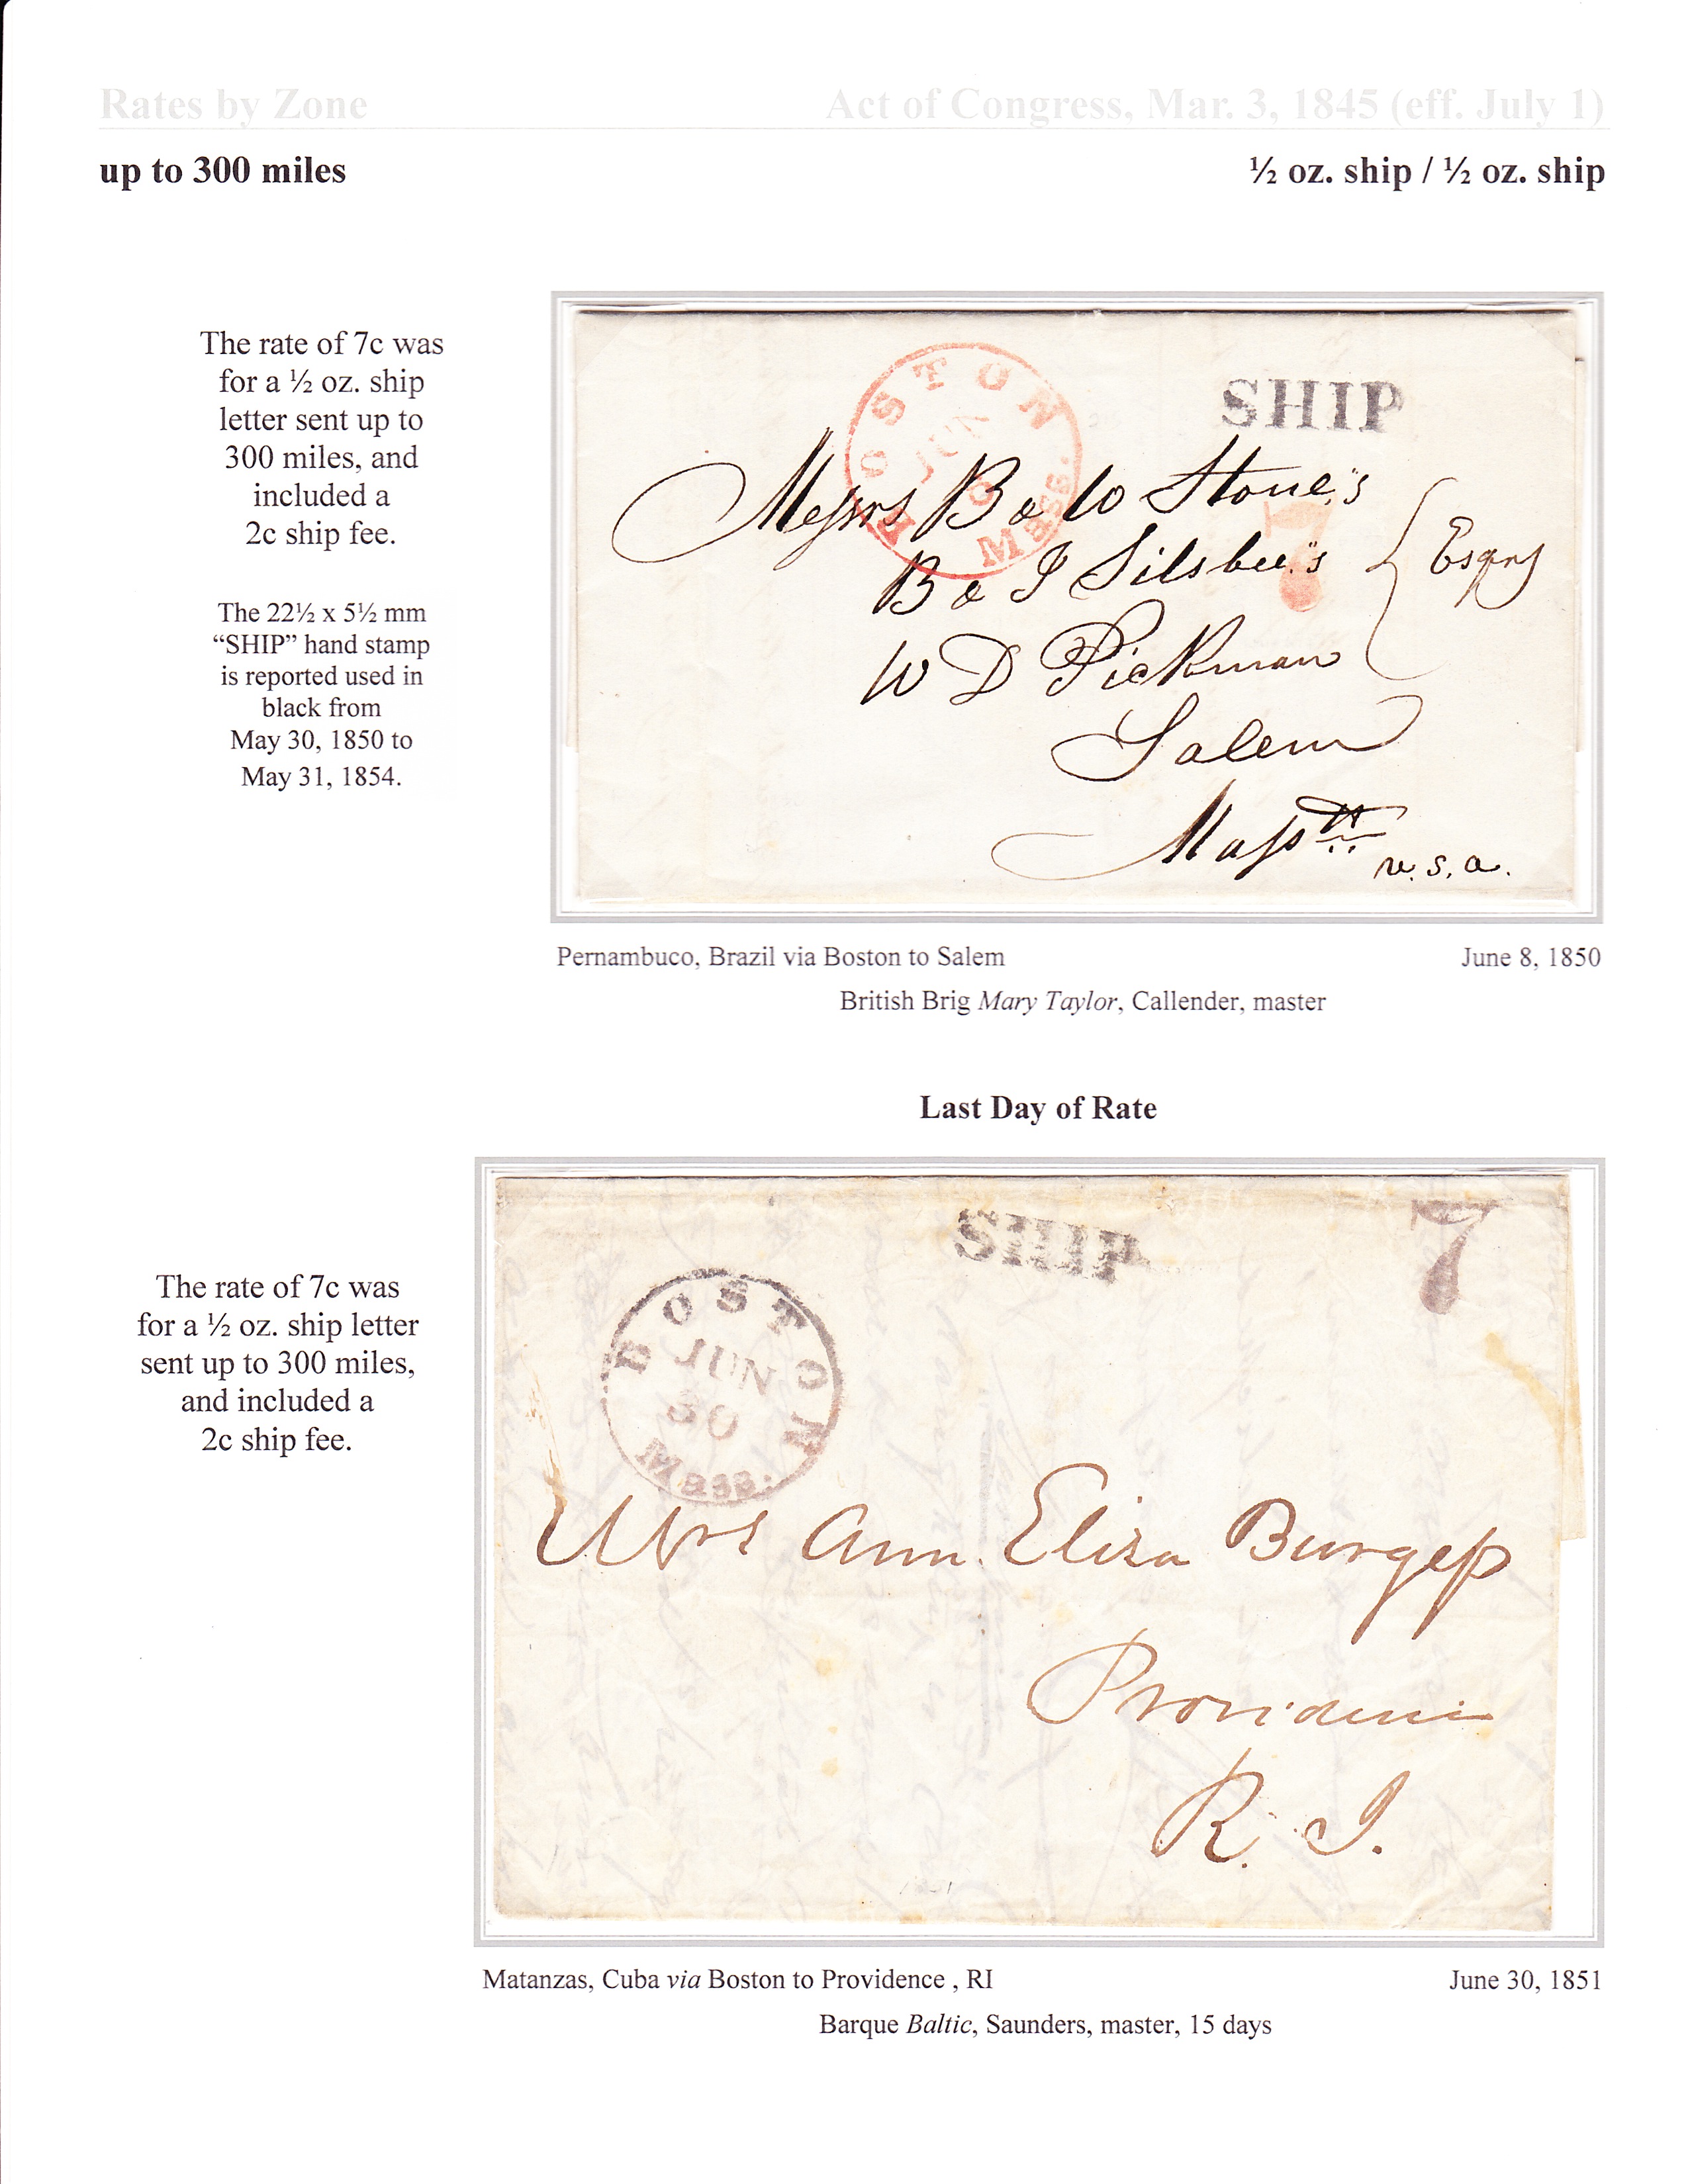 Rates by Zone Act of Congress, Mar. 3, 1845 (eff. July 1)
up to 300 miles ½ oz. ship / ½ oz. ship
The rate of 7c was
for a ½ oz. ship
letter sent up to
300 miles, and
included a
2c ship fee.
The 22½ x 5½ mm
“SHIP” hand stamp
is reported used in
black from
May 30, 1850 to
May 31, 1854.
BOSTON
JUN
Mass.
SHIP
7
Messrs B & W Stone's
B & J Silsbee's Esqrs
W D Pickman
Salem
Masstt
u.s.a.
Pernambuco, Brazil via Boston to Salem June 8, 1850
British Brig Mary Taylor, Callender, master
Last Day of Rate
The rate of 7c was
for a ½ oz. ship letter
sent up to 300 miles,
and included a
2c ship fee.
SHIP
7
BOSTON
JUN
30
Mass.
Mrs Ann Eliza Burgess
Providence
R. I.
Matanzas, Cuba via Boston to Providence , RI June 30, 1851
Barque Baltic, Saunders, master, 15 days